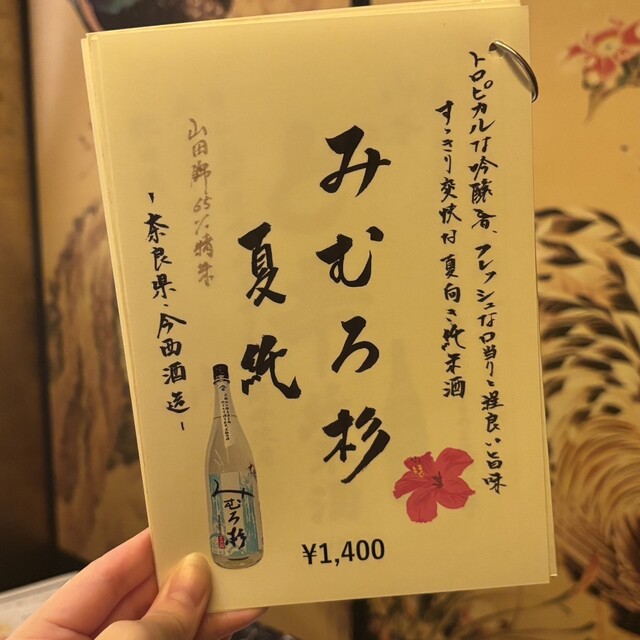 トロピカルな吟醸香、フレッシュな口当りと程良い旨味
すっきり爽快な夏向き純米酒
みむろ杉
夏純
山田錦65%精米
-奈良県・今西酒造-
みむろ杉
¥1,400